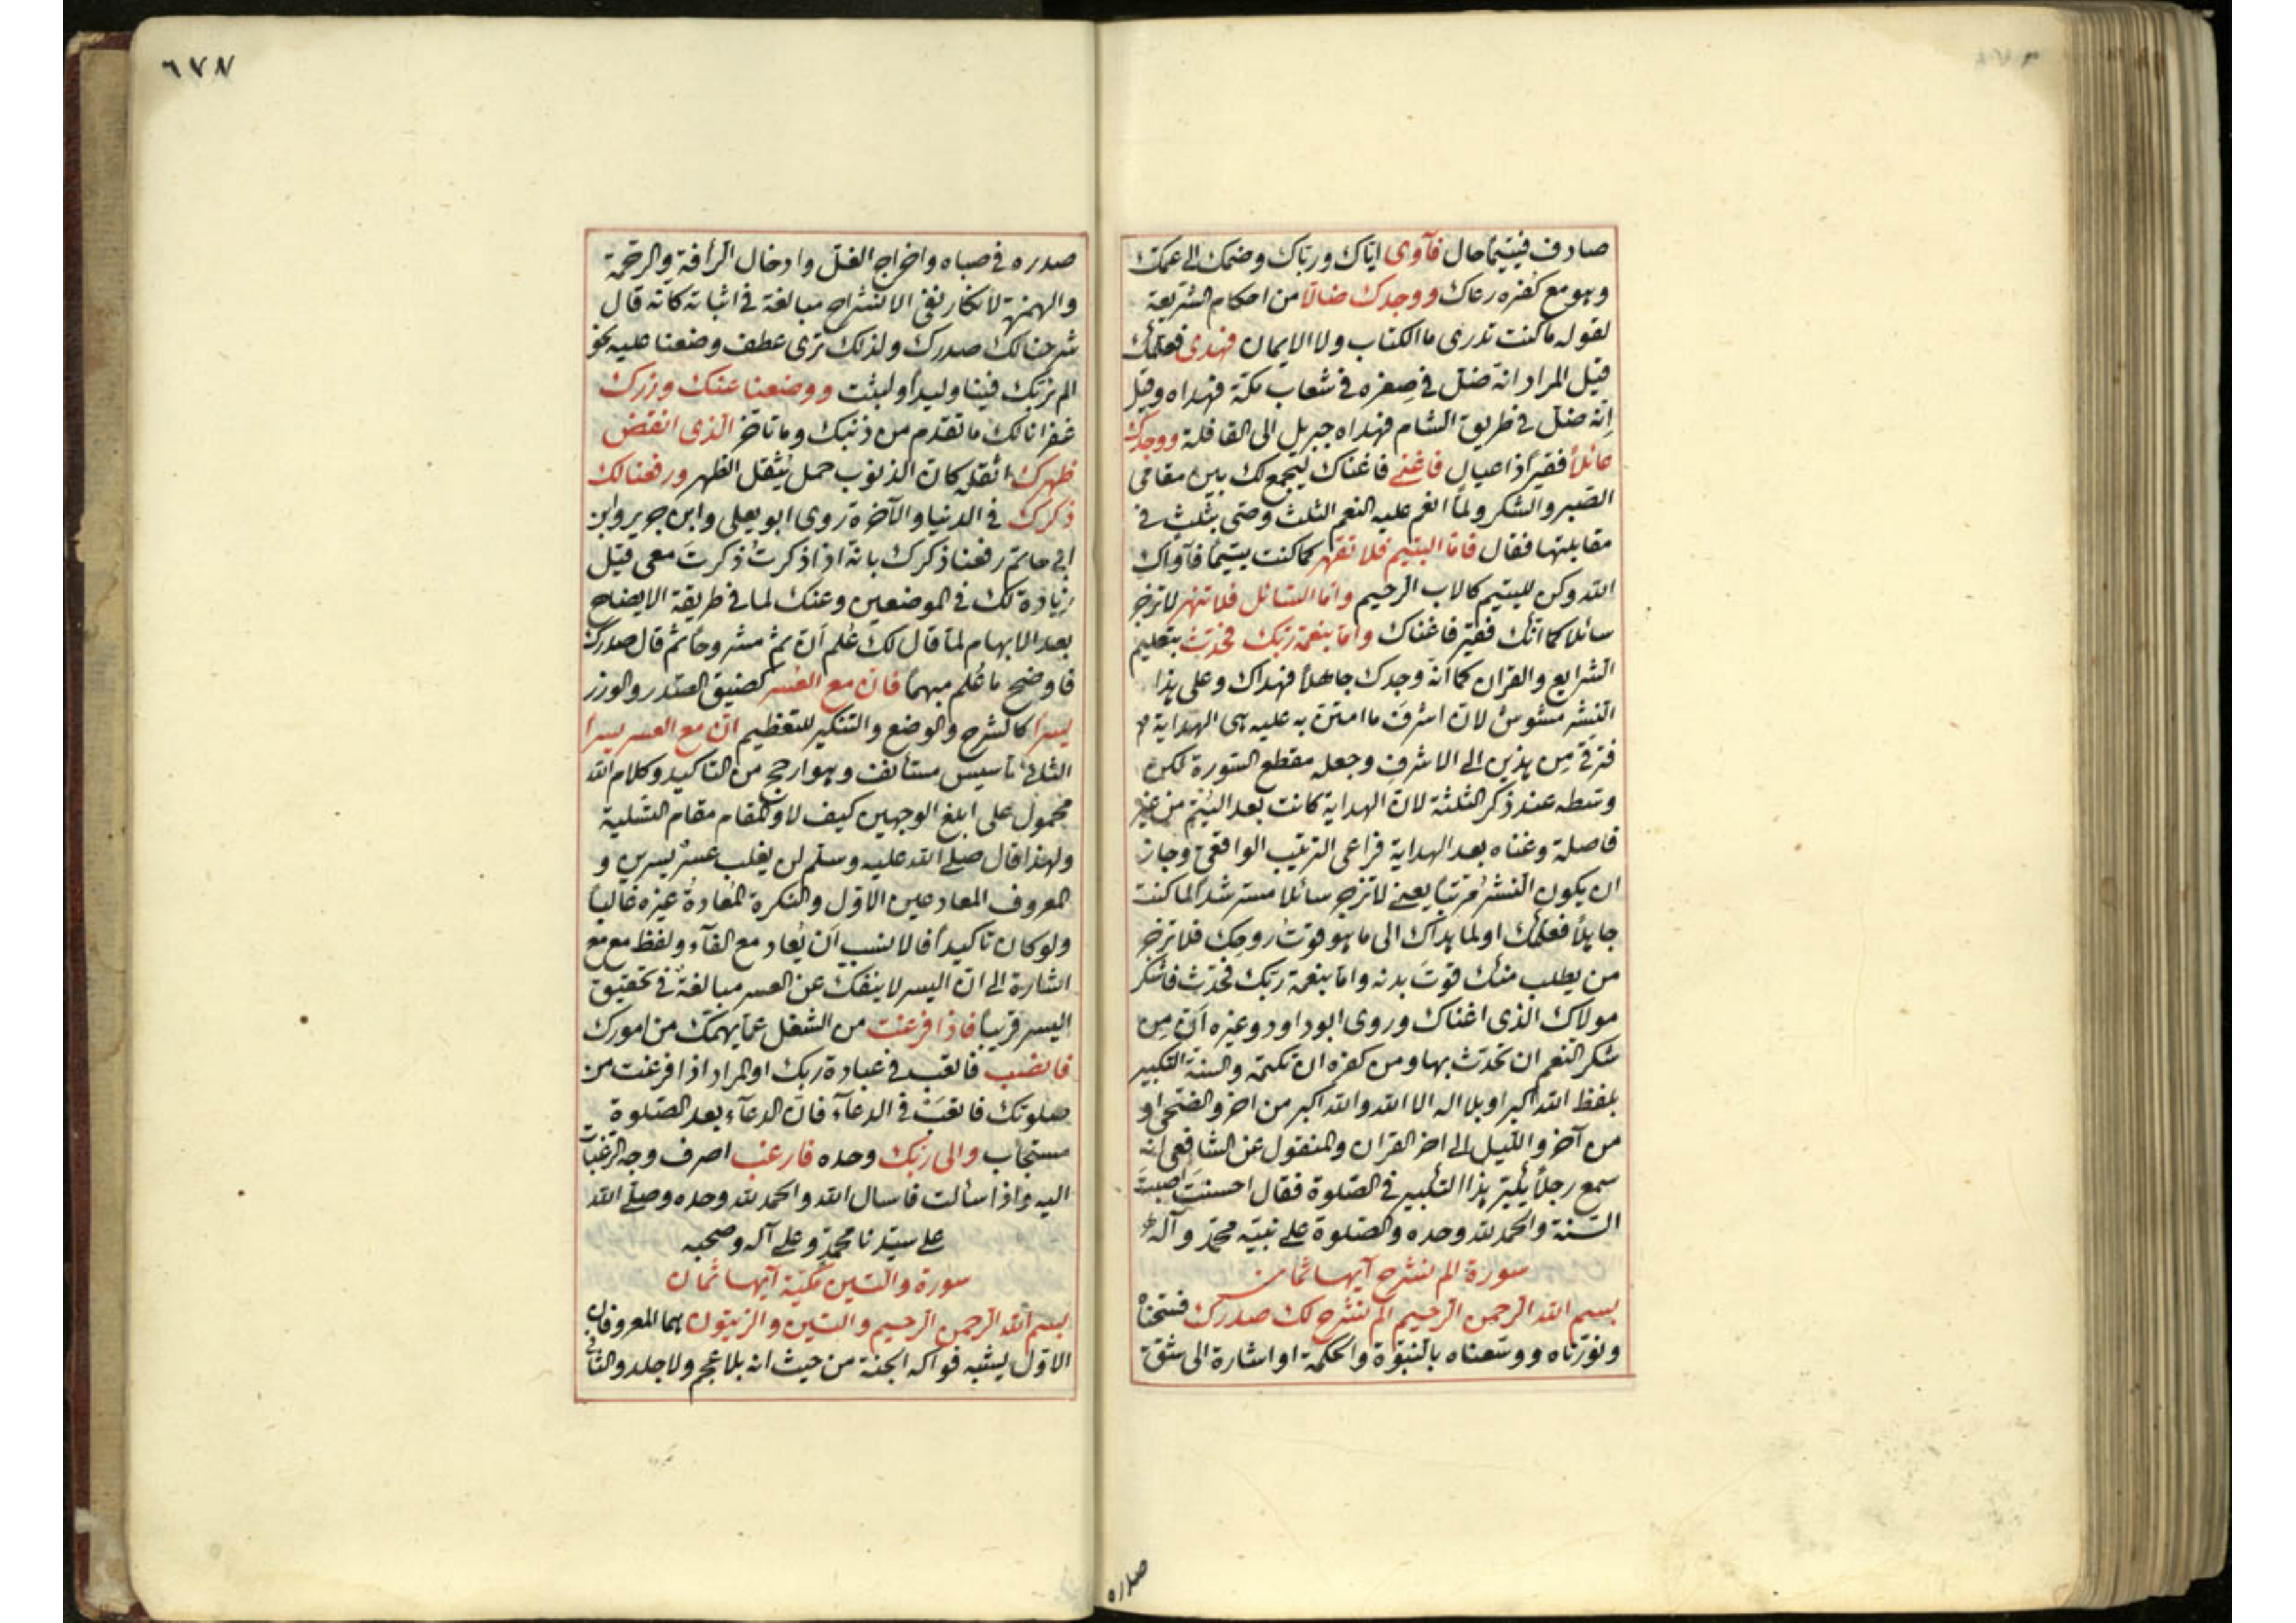 صادف فيتيمًا حال فآوى اياك ورباك وضمك الى عمك
وهو مع كفره رعاك ووجدك ضالا من احكام الشريعة
لقوله ما كنت تدرى ما الكتاب ولا الايمان فهدى فعلمك
قيل المراد انه ضل فى صغره فى شعاب مكة فهداه وقيل
انه ضل فى طريق الشام فهداه جبريل الى القافلة ووجدك
عائلا فقيرًا ذا عيال فاغنى فاغناك ليجمع لك بين مقامى
الصبر والشكر ولما انعم عليه النعم الثلث وصى بثلث فى
مقابلتها فقال فاما اليتيم فلا تقهر كما كنت يتيمًا فآواك
الله وكن لليتيم كالاب الرحيم واما السائل فلا تنهر لا تزجر
سائلا كما انك فقير فاغناك واما بنعمة ربك فحدث بتعليم
الشرايع والقران كما انه وجدك جاهلًا فهداك وعلى هذا
النشر مشوش لان اشرف ما امتن به عليه هى الهداية
فترقى من هذين الى الاشرف وجعله مقطع السورة لكن
وسطه عند ذكر الثلثة لان الهداية كانت بعد اليتم من غير
فاصلة وغناه بعد الهداية فراعى الترتيب الواقعى وجاز
ان يكون النشر مرتبًا يعنى لا تزجر سائلا مسترشدًا لما كنت
جاهلًا فعلمك او لما هداك الى ما هو قوت روحك فلا تزجر
من يطلب منك قوت بدنه واما بنعمة ربك فحدث فاشكر
مولاك الذى اغناك وروى ابو داود وغيره ان من
شكر النعم ان تحدث بها ومن كفره ان تكتمه والسنة التكبير
بلفظ الله اكبر او بلا اله الا الله والله اكبر من اخر والضحى او
من آخر والليل الى اخر القران والمنقول عن الشافعى انه
سمع رجلًا يكبر هذا التكبير فى الصلوة فقال احسنت اصبت
السنة والحمد لله وحده والصلوة على نبيه محمد وآله
سورة الم نشرح آيها ثمان
بسم الله الرحمن الرحيم الم نشرح لك صدرك فسحناه
ونورناه ووسعناه بالنبوة والحكمة او اشارة الى شق
صدره
٦٧٨
صدره فى صباه واخراج الغل وادخال الرأفة والرحمة
والهمزة لانكار نفى الانشراح مبالغة فى اثباته كانه قال
شرحنا لك صدرك ولذلك ترى عطف وضعنا عليه نحو
الم نربك فينا وليدًا ولبثت ووضعنا عنك وزرك
غفرنا لك ما تقدم من ذنبك وما تأخر الذى انقض
ظهرك اثقله كان الذنوب حمل يثقل الظهر ورفعنا لك
ذكرك فى الدنيا والآخرة روى ابو يعلى وابن جرير وابن
ابى حاتم رفعنا ذكرك بانه اذا ذكرت ذكرت معى قيل
زيادة لك فى الموضعين وعنك لما فى طريقة الايضاح
بعد الابهام لما قال لك علم ان ثم مشروحًا ثم قال صدرك
فاوضح ما علم مبهما فان مع العسر كضيق الصدر والوزر
يسرا كالشرح والوضع والتنكير للتعظيم ان مع العسر يسرا
الثانى تأسيس مستأنف وهو ارجح من التأكيد وكلام الله
محمول على ابلغ الوجهين كيف لا والمقام مقام التسلية
ولهذا قال صلى الله عليه وسلم لن يغلب عسر يسرين و
المعروف المعاد عين الاول والنكرة المعادة غيره غالبًا
ولو كان تأكيدًا فالانسب ان يعاد مع الفآء ولفظ مع مع
اشارة الى ان اليسر لا ينفك عن العسر مبالغة فى تحقيق
اليسر قريبًا فاذا فرغت من الشغل عما يهمك من امورك
فانصب فاتعب فى عبادة ربك او المراد اذا فرغت من
صلوتك فاتعب فى الدعآء فان الدعآء بعد الصلوة
مستجاب والى ربك وحده فارغب اصرف وجه الرغبات
اليه واذا سألت فاسأل الله والحمد لله وحده وصلى الله
على سيدنا محمد وعلى آله وصحبه
سورة والتين مكية آيها ثمان
بسم الله الرحمن الرحيم والتين والزيتون هما المعروفان
الاول يشبه فواكه الجنة من حيث انه بلا عجم ولا جلد والثانى